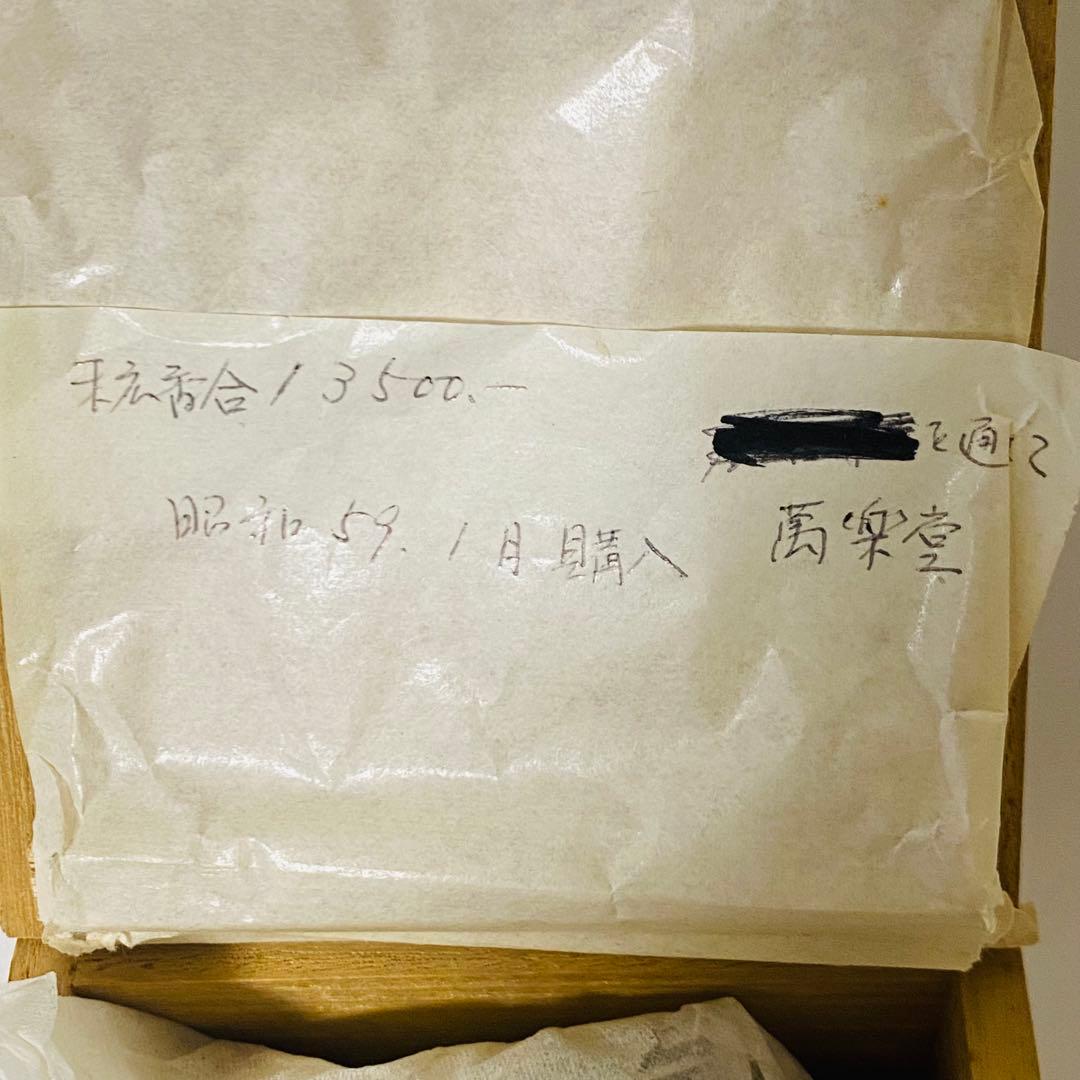 香合 13500.—
を通して
昭和59.1月購入
萬楽堂